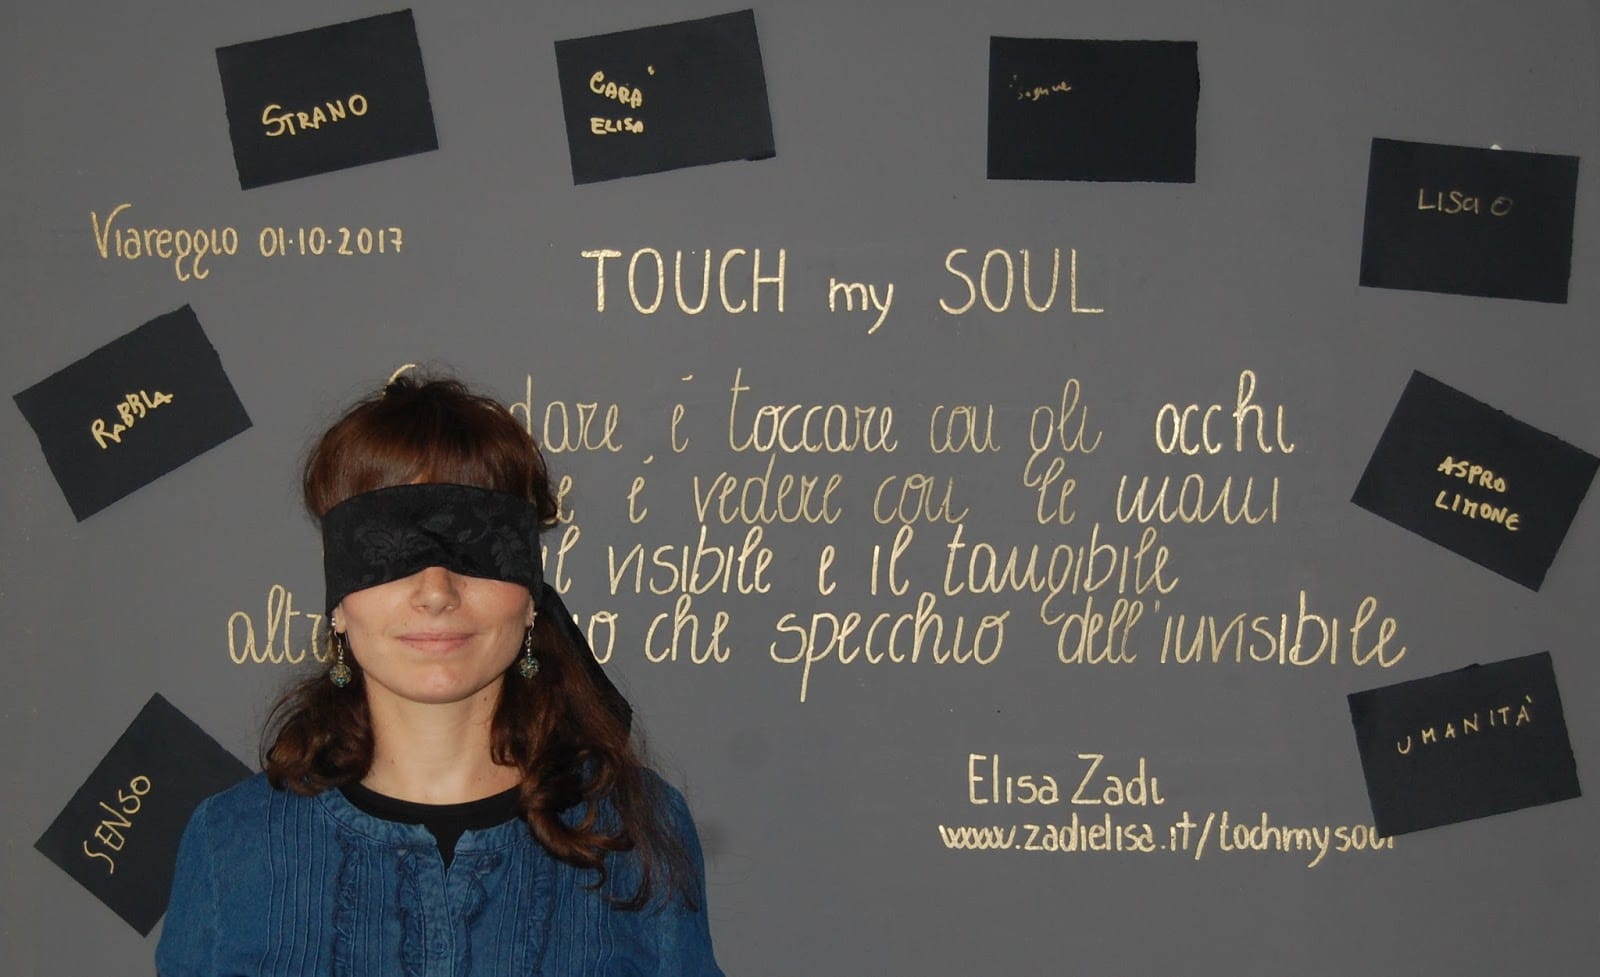 STRANO
CARA
ELISA
LISCIO
Viareggio 01·10·2017
TOUCH my SOUL
RABBIA
dare é toccare con gli occhi
é vedere con le mani
il visibile e il tangibile
altro che specchio dell'invisibile
ASPRO
LIMONE
UMANITÀ
SENSO
Elisa Zadi
www.zadielisa.it/tochmysoul